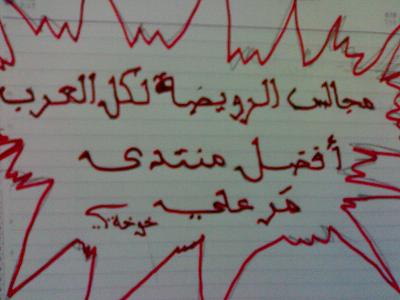 مجالس الرويضة لكل العرب
أفضل منتدى
مَر علي
خوخة؟..